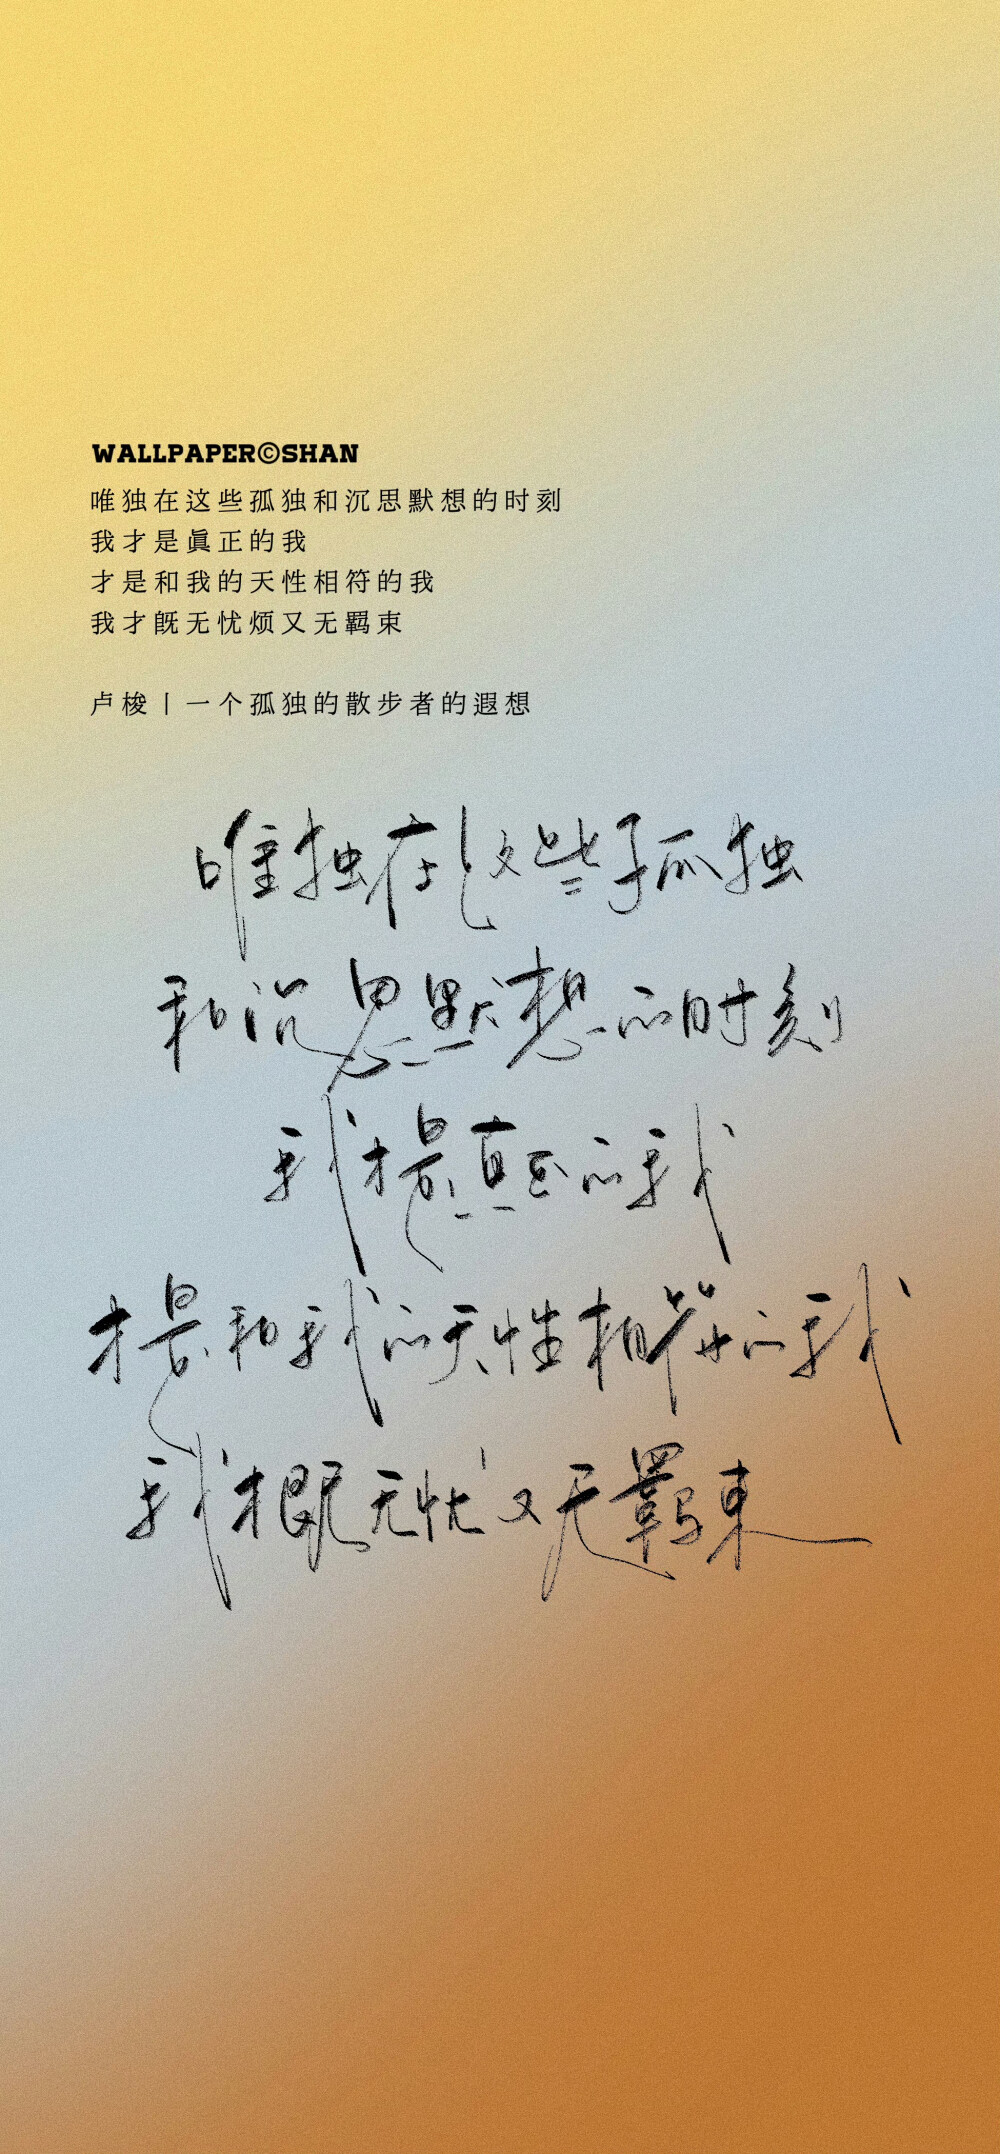 WALLPAPER©SHAN
唯独在这些孤独和沉思默想的时刻
我才是眞正的我
才是和我的天性相符的我
我才旣无忧烦又无羁束
卢梭丨一个孤独的散步者的遐想
唯独在这些孤独
和沉思默想的时刻
我才是真正的我
才是和我的天性相符的我
我才既无忧又无羁束